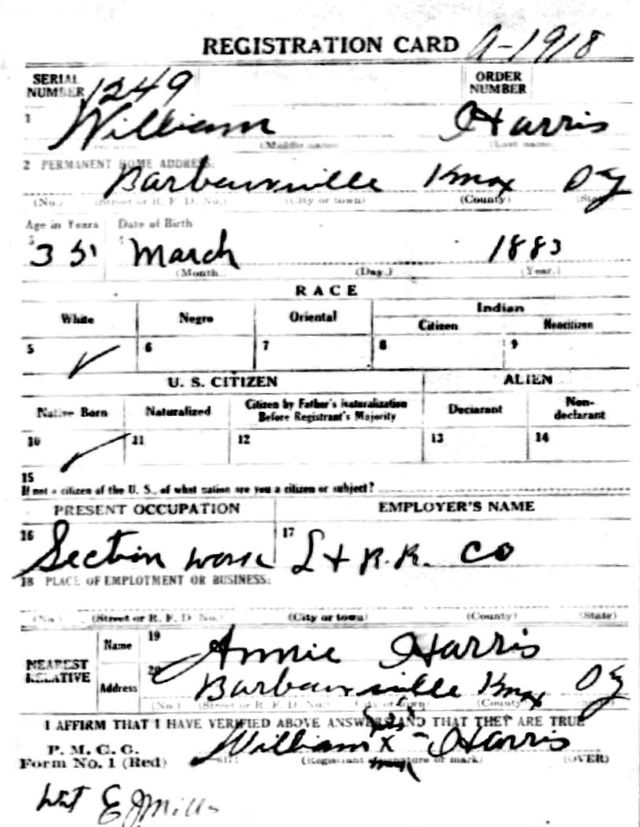 REGISTRATION CARD A-1918
SERIAL NUMBER 1249 ORDER NUMBER
1 William Harris
(Middle name) (Last name)
2 PERMANENT HOME ADDRESS:
Barbourville Knox Ky
(No.) (Street or R. F. D. No.) (City or town) (County) (State)
Age in Years Date of Birth
3 35 4 March 1883
(Month) (Day.) (Year.)
RACE
White Negro Oriental Indian
Citizen Noncitizen
5 ✓ 6 7 8 9
U. S. CITIZEN ALIEN
Native Born Naturalized Citizen by Father's Naturalization Before Registrant's Majority Declarant Non-declarant
10 ✓ 11 12 13 14
15
If not a citizen of the U. S., of what nation are you a citizen or subject?
PRESENT OCCUPATION EMPLOYER'S NAME
16 Section work 17 L + R.R. Co
18 PLACE OF EMPLOYMENT OR BUSINESS:
(No.) (Street or R. F. D. No.) (City or town) (County) (State)
NEAREST RELATIVE Name 19 Annie Harris
Address 20 Barbourville Knox Ky
(No.) (Street or R. F. D. No.) (City or town) (County) (State)
I AFFIRM THAT I HAVE VERIFIED ABOVE ANSWERS AND THAT THEY ARE TRUE
P. M. G. O.
Form No. 1 (Red) William his x mark Harris
(Registrant signature or mark) (OVER)
Wit E J Mills